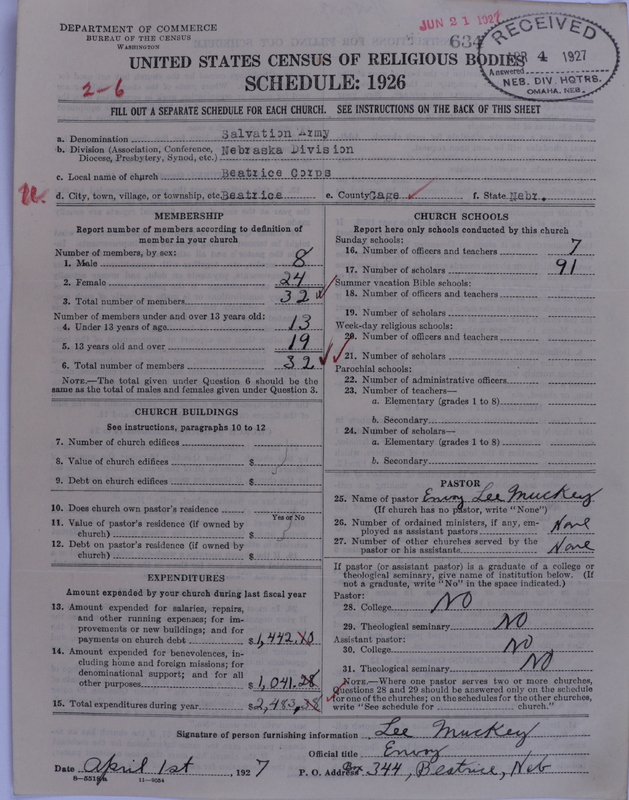 DEPARTMENT OF COMMERCE
BUREAU OF THE CENSUS
WASHINGTON
JUN 21 1927
634
RECEIVED
APR 4 1927
Answered
NEB. DIV. HQTRS.
OMAHA, NEB.
UNITED STATES CENSUS OF RELIGIOUS BODIES
2-6
SCHEDULE: 1926
FILL OUT A SEPARATE SCHEDULE FOR EACH CHURCH. SEE INSTRUCTIONS ON THE BACK OF THIS SHEET
a. Denomination Salvation Army
b. Division (Association, Conference, Diocese, Presbytery, Synod, etc.) Nebraska Division
c. Local name of church Beatrice Corps
d. City, town, village, or township, etc. Beatrice e. County Gage f. State Nebr.
MEMBERSHIP
Report number of members according to definition of
member in your church
Number of members, by sex:
1. Male 8
2. Female 24
3. Total number of members 32
Number of members under and over 13 years old:
4. Under 13 years of age 13
5. 13 years old and over 19
6. Total number of members 32
NOTE.—The total given under Question 6 should be
same as the total of males and females given under Question 3.
CHURCH BUILDINGS
See instructions, paragraphs 10 to 12
7. Number of church edifices
8. Value of church edifices $
9. Debt on church edifices $
10. Does church own pastor's residence
Yes or No
11. Value of pastor's residence (if owned by
church) $
12. Debt on pastor's residence (if owned by
church) $
EXPENDITURES
Amount expended by your church during last fiscal year
13. Amount expended for salaries, repairs,
and other running expenses; for im-
provements or new buildings; and for
payments on church debt $1,442.10
14. Amount expended for benevolences, in-
cluding home and foreign missions; for
denominational support; and for all
other purposes $1,041.28
15. Total expenditures during year $2,483.38
CHURCH SCHOOLS
Report here only schools conducted by this church
Sunday schools:
16. Number of officers and teachers 7
17. Number of scholars 91
Summer vacation Bible schools:
18. Number of officers and teachers
19. Number of scholars
Week-day religious schools:
20. Number of officers and teachers
21. Number of scholars
Parochial schools:
22. Number of administrative officers
23. Number of teachers—
a. Elementary (grades 1 to 8)
b. Secondary
24. Number of scholars—
a. Elementary (grades 1 to 8)
b. Secondary
PASTOR
25. Name of pastor Envoy Lee Muckey
(If church has no pastor, write "None")
26. Number of ordained ministers, if any, em-
ployed as assistant pastors None
27. Number of other churches served by the
pastor or his assistants None
If pastor (or assistant pastor) is a graduate of a college or
theological seminary, give name of institution below. (If
not a graduate, write "No" in the space indicated.)
Pastor:
28. College No
29. Theological seminary No
Assistant pastor:
30. College No
31. Theological seminary No
NOTE.—Where one pastor serves two or more churches,
Questions 28 and 29 should be answered only on the schedule
for one of the churches; on the schedules for the other churches,
write "See schedule for church."
Signature of person furnishing information Lee Muckey
Official title Envoy
Date April 1st, 1927 P. O. Address Box 344, Beatrice, Neb
11—9054